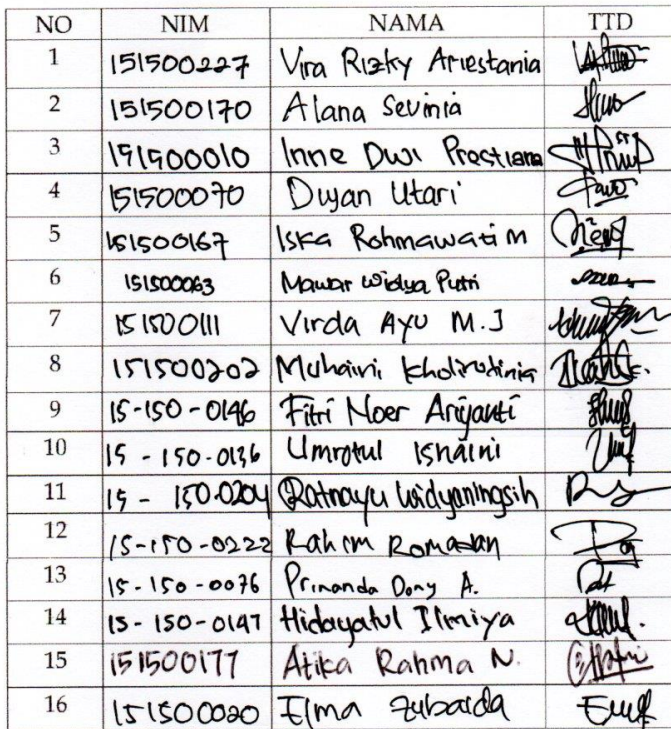 NO NIM NAMA TTD
1 151500227 Vira Rizky Ariestania
2 151500170 Alana Sevinia
3 151500010 Inne Dwi Prestiana
4 151500070 Duyan Utari
5 151500167 Iska Rohmawati M
6 151500063 Mawar Widya Putri
7 151500111 Virda Ayu M.J
8 151500202 Muhaini
9 15-150-0146 Fitri Noer Ariyanti
10 15-150-0136 Umrotul Isnaini
11 15-150-0204 Ratnayu Widyaningsih
12 15-150-0222 Rahim Romadan
13 15-150-0076 Primanda Dony A.
14 15-150-0147 Hidayatul Ilmiya
15 151500177 Atika Rahma N.
16 151500020 Elma Zubaida